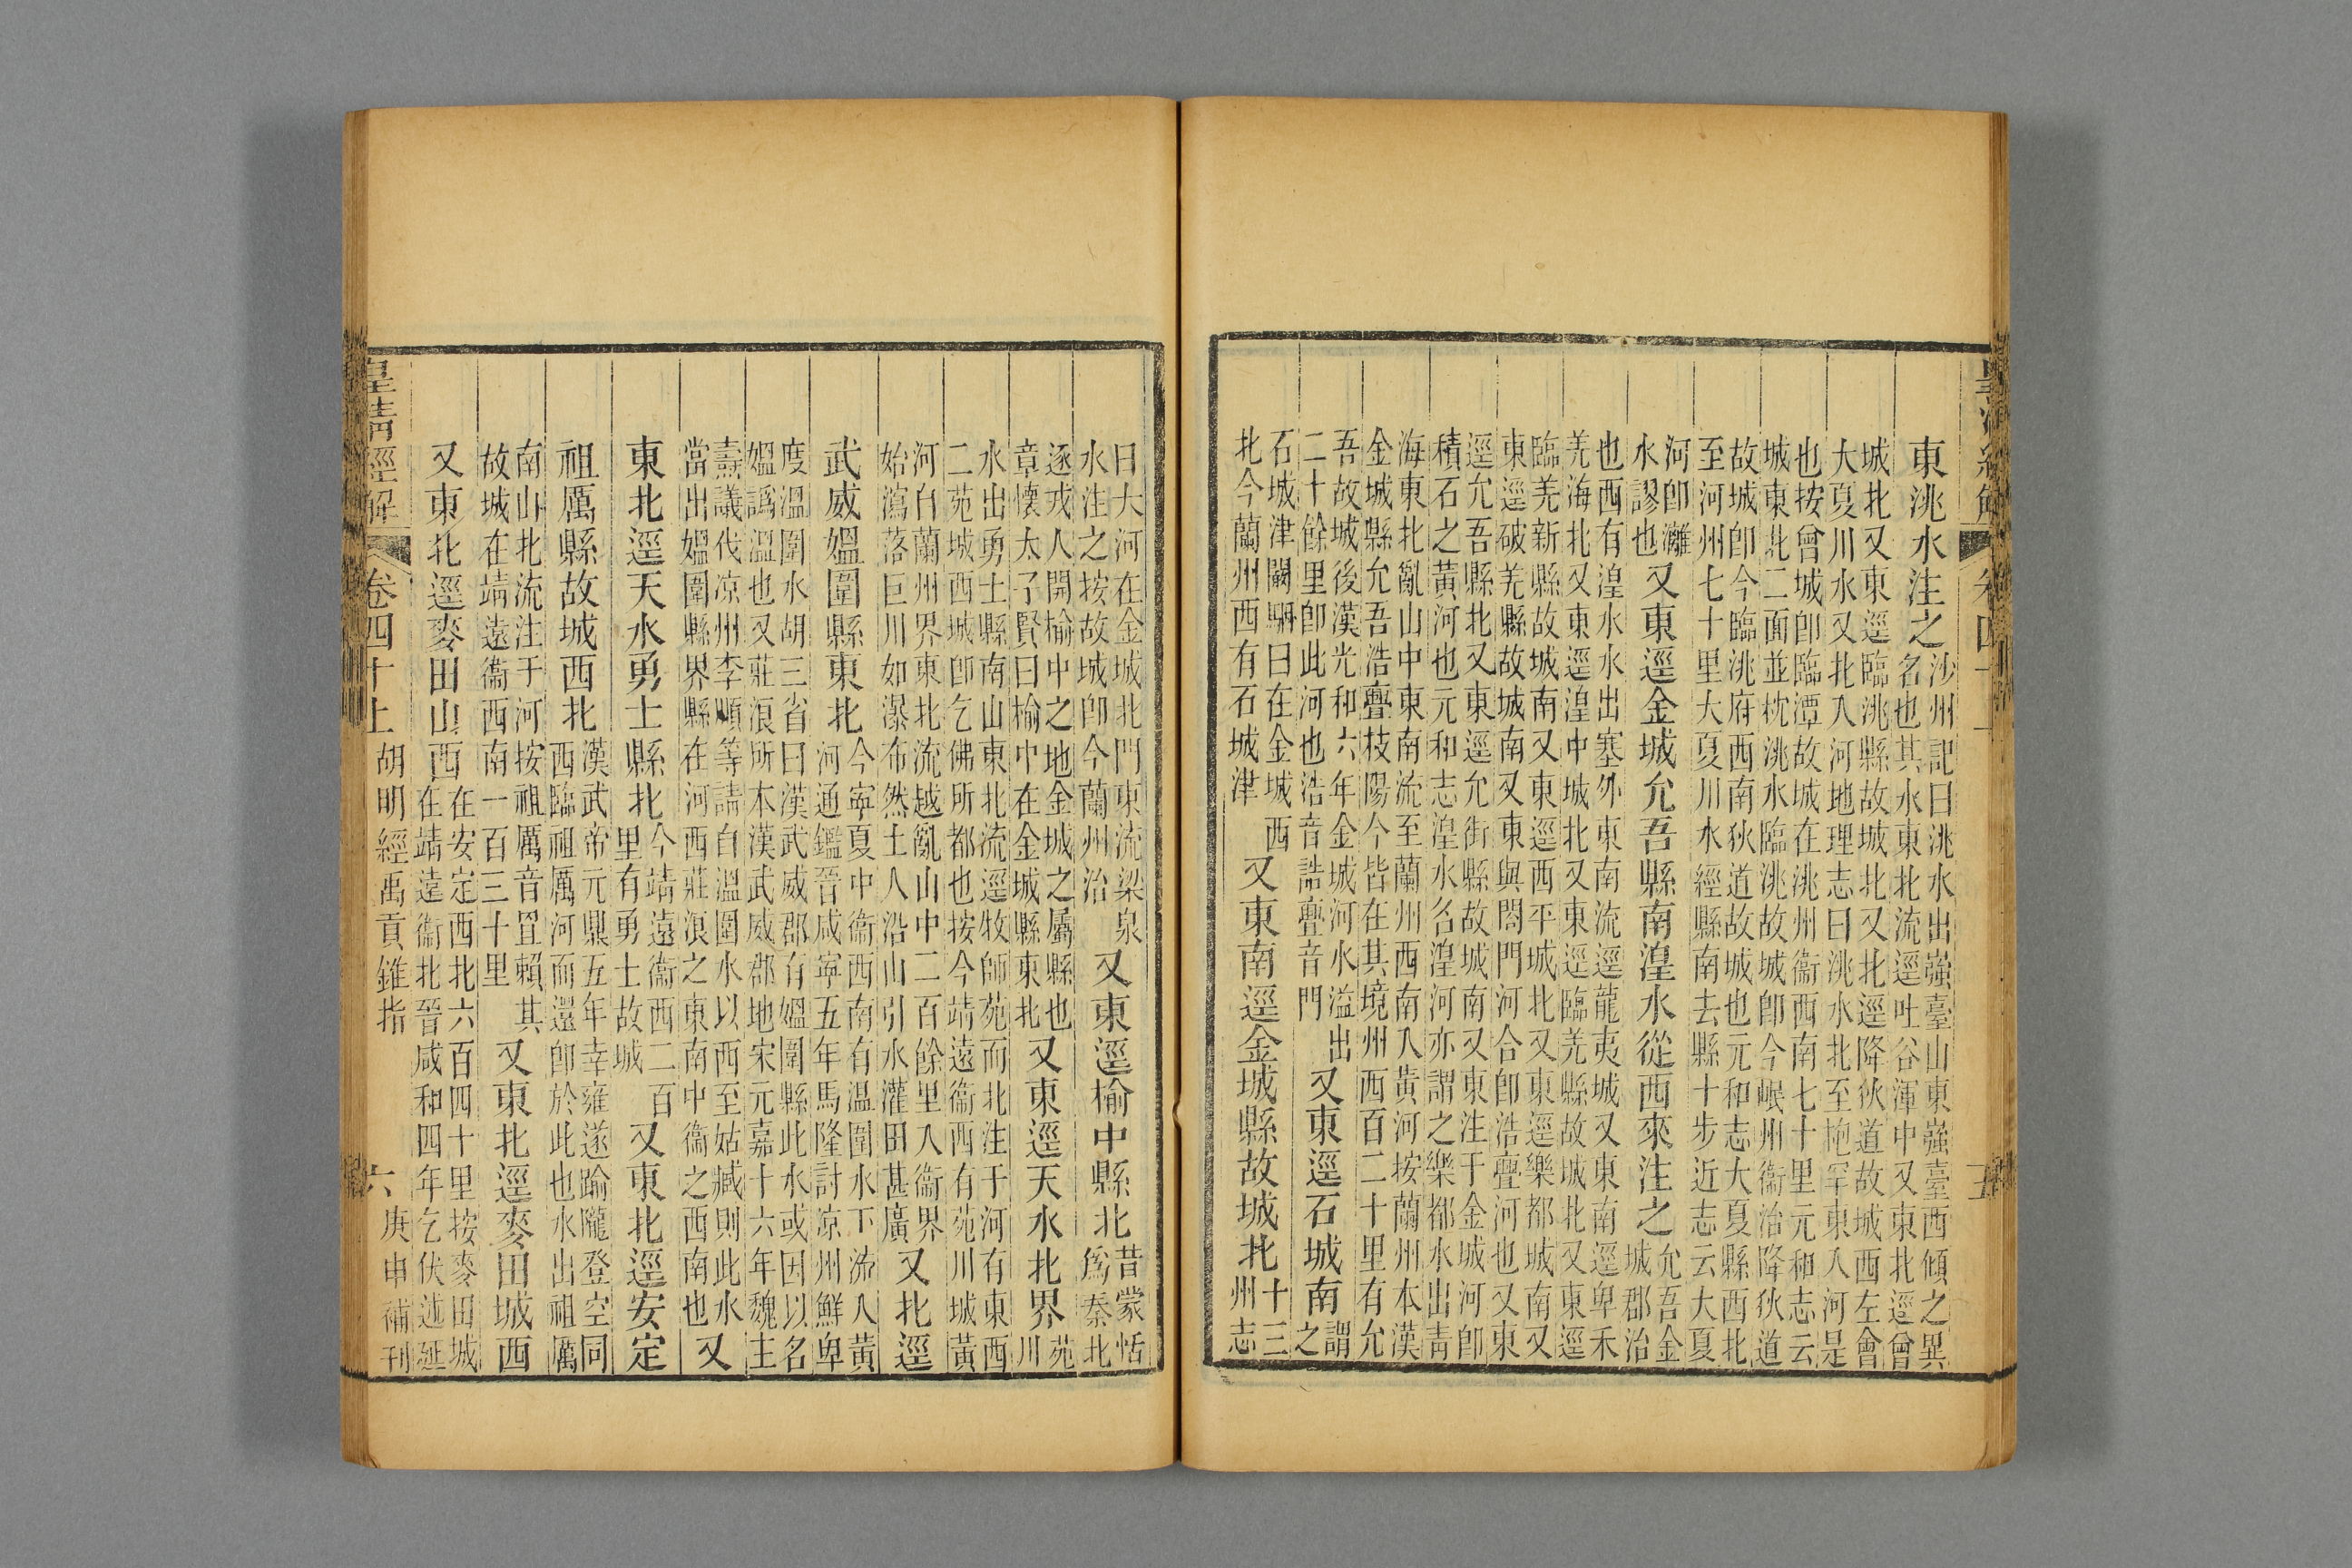 東洮水注之
沙州記曰洮水出強臺山東強臺西傾之異
名也其水東北流逕吐谷渾中又東北逕曾
城北又東逕臨洮縣故城北又北逕降狄道故城西左會
大夏川水又北入河地理志曰洮水北至枹罕東入河是
也按曾城卽臨潭故城在洮州衞西南七十里元和志云
城東北二面並枕洮水臨洮故城卽今岷州衞治降狄道
故城卽今臨洮府西南狄道故城也元和志大夏縣西北
至河州七十里大夏川水經縣南去縣十步近志云大夏
河卽灕
水謬也
又東逕金城允吾縣南湟水從西來注之
允吾金
城郡治
也西有湟水水出塞外東南流逕龍夷城又東南逕卑禾
羌海北又東逕湟中城北又東逕臨羌縣故城北又東逕
臨羌新縣故城南又東逕西平城北又東逕樂都城南又
東逕破羌縣故城南又東與閤門河合卽浩亹河也又東
逕允吾縣北又東逕允街縣故城南又東注于金城河卽
積石之黃河也元和志湟水名湟河亦謂之樂都水出靑
海東北亂山中東南流至蘭州西南入黃河按蘭州本漢
金城縣允吾浩亹枝陽今皆在其境州西百二十里有允
吾故城後漢光和六年金城河水溢出
二十餘里卽此河也浩音誥亹音門
又東逕石城南
謂
之
石城津闞駰曰在金城西
北今蘭州西有石城津
又東南逕金城縣故城北
十三
州志
曰大河在金城北門東流梁泉
水注之按故城卽今蘭州治
又東逕榆中縣北
昔蒙恬
爲秦北
逐戎人開榆中之地金城之屬縣也
章懷太子賢曰榆中在金城縣東北
又東逕天水北界
苑
川
水出勇士縣南山東北流逕牧師苑而北注于河有東西
二苑城西城卽乞佛所都也按今靖遠衞西有苑川城黃
河自蘭州界東北流越亂山中二百餘里入衞界
始瀉落巨川如瀑布然土人沿山引水灌田甚廣
又北逕
武威媼圍縣東北
今寧夏中衞西南有温圍水下流入黃
河通鑑晉咸寧五年馬隆討凉州鮮卑
度溫圍水胡三省曰漢武威郡有媼圍縣此水或因以名
媼譌溫也又莊浪所本漢武威郡地宋元嘉十六年魏主
燾議伐凉州李順等請自溫圍水以西至姑臧則此水
當出媼圍縣界縣在河西莊浪之東南中衞之西南也
又
東北逕天水勇士縣北
今靖遠衞西二百
里有勇士故城
又東北逕安定
祖厲縣故城西北
漢武帝元鼎五年幸雍遂踰隴登空同
西臨祖厲河而還卽於此也水出祖厲
南山北流注于河按祖厲音罝賴其
故城在靖遠衞西南一百三十里
又東北逕麥田城西
又東北逕麥田山西
在安定西北六百四十里按麥田城
在靖遠衞北晉咸和四年乞伏述延
皇清經解 卷四十上 胡明經禹貢錐指 六 庚申補刊